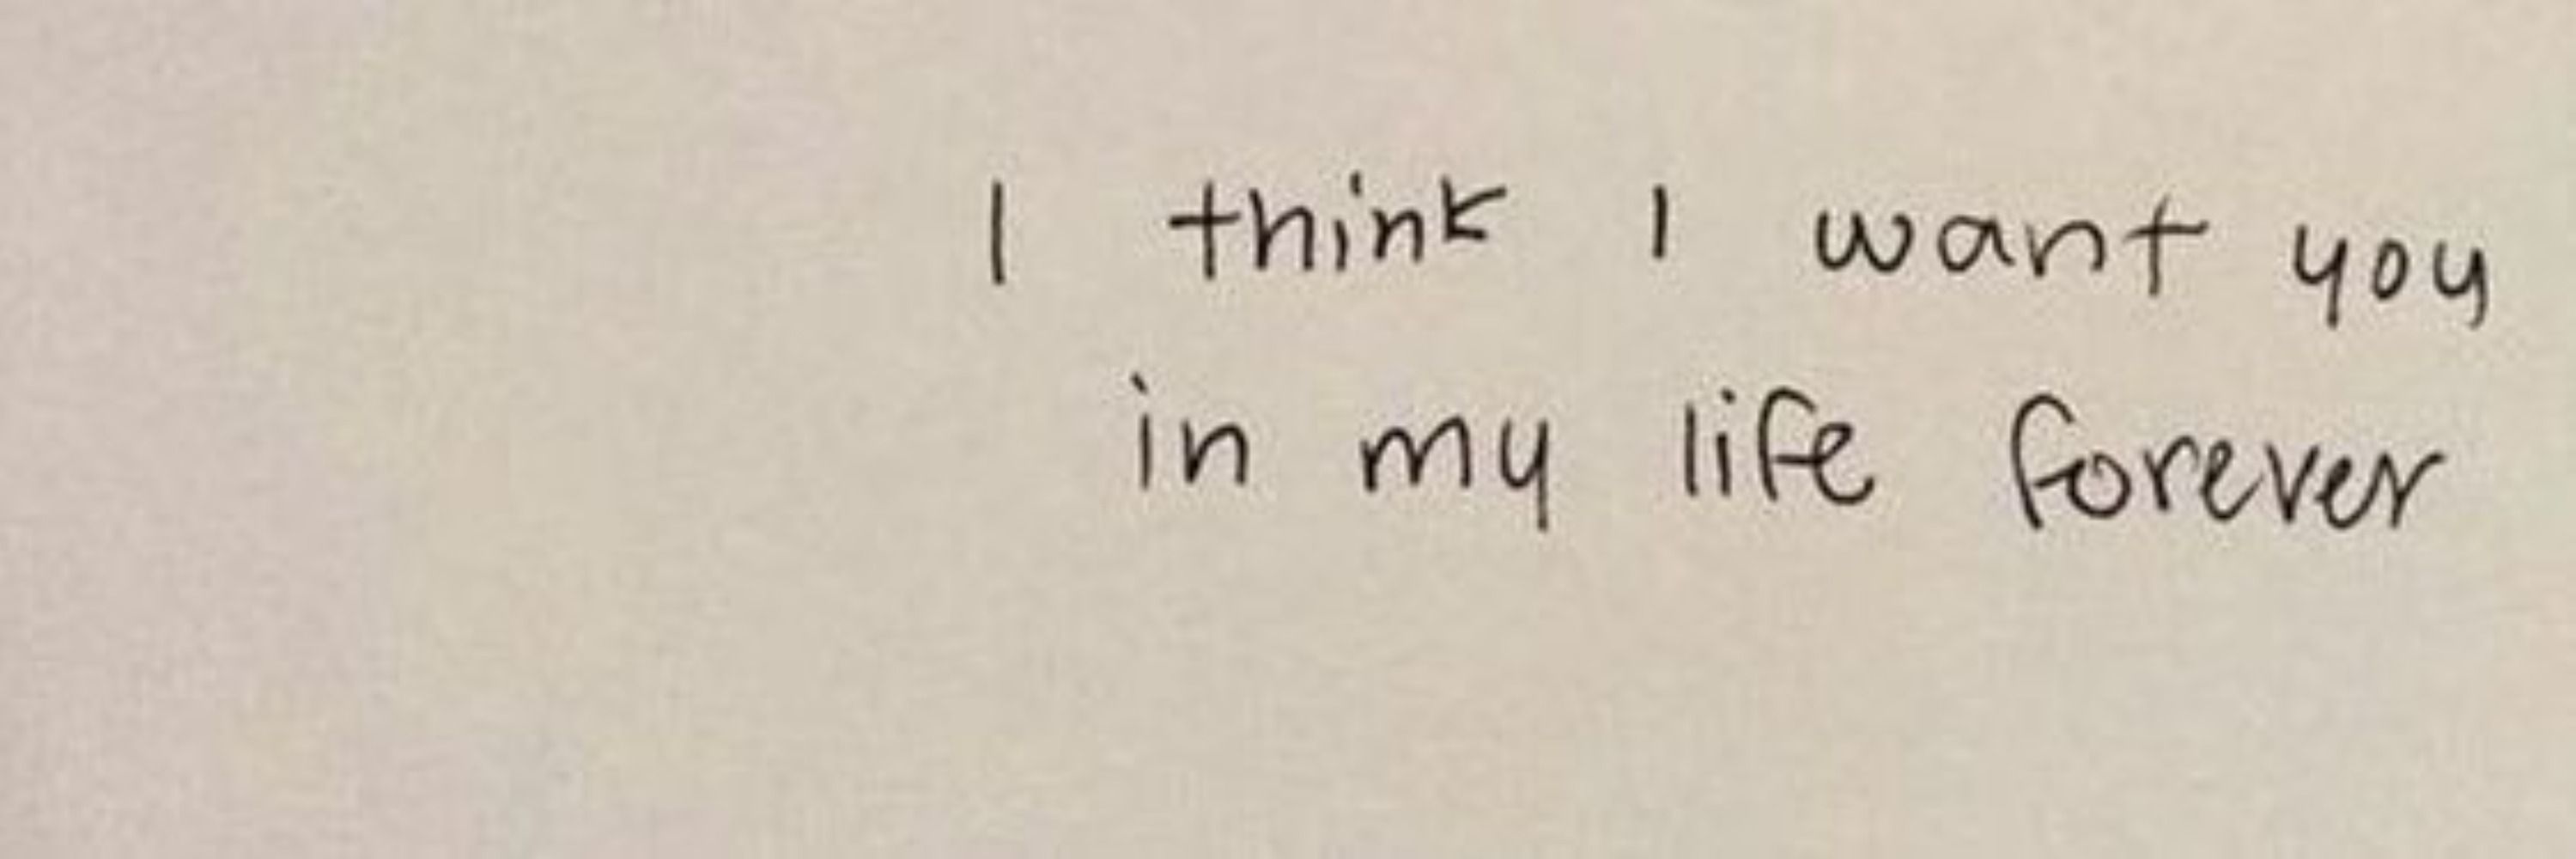 I think I want you
in my life forever